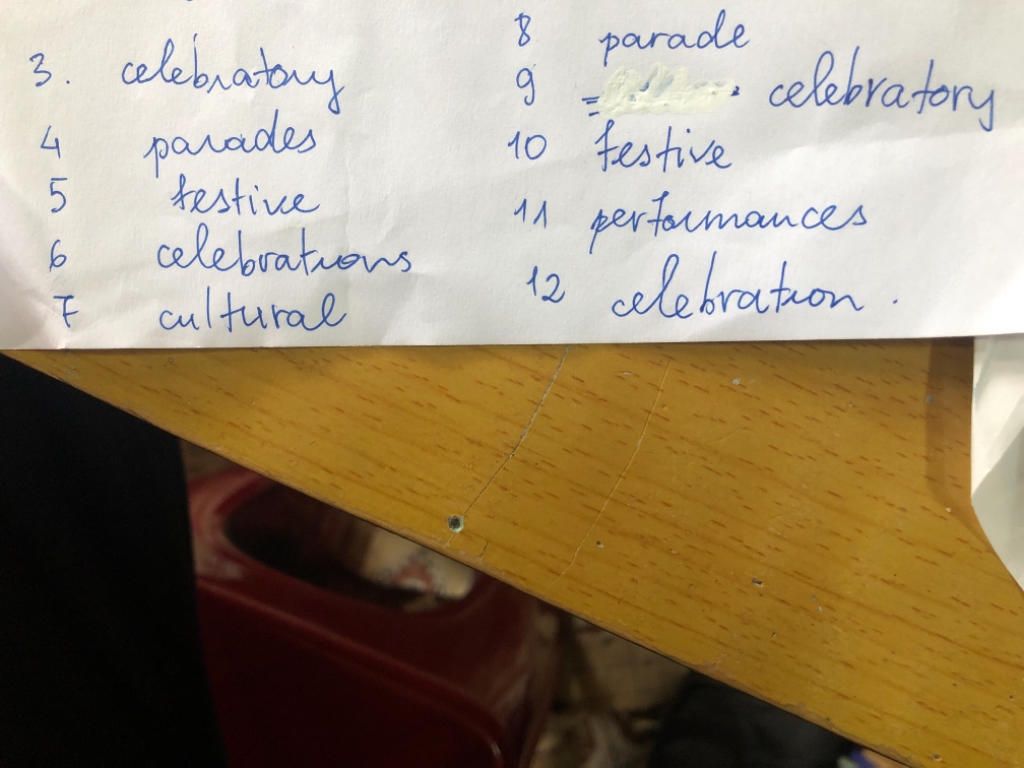 3. celebratory
4 parades
5 festive
6 celebrations
7 cultural
8 parade
9 = celebratory
10 festive
11 performances
12 celebration.